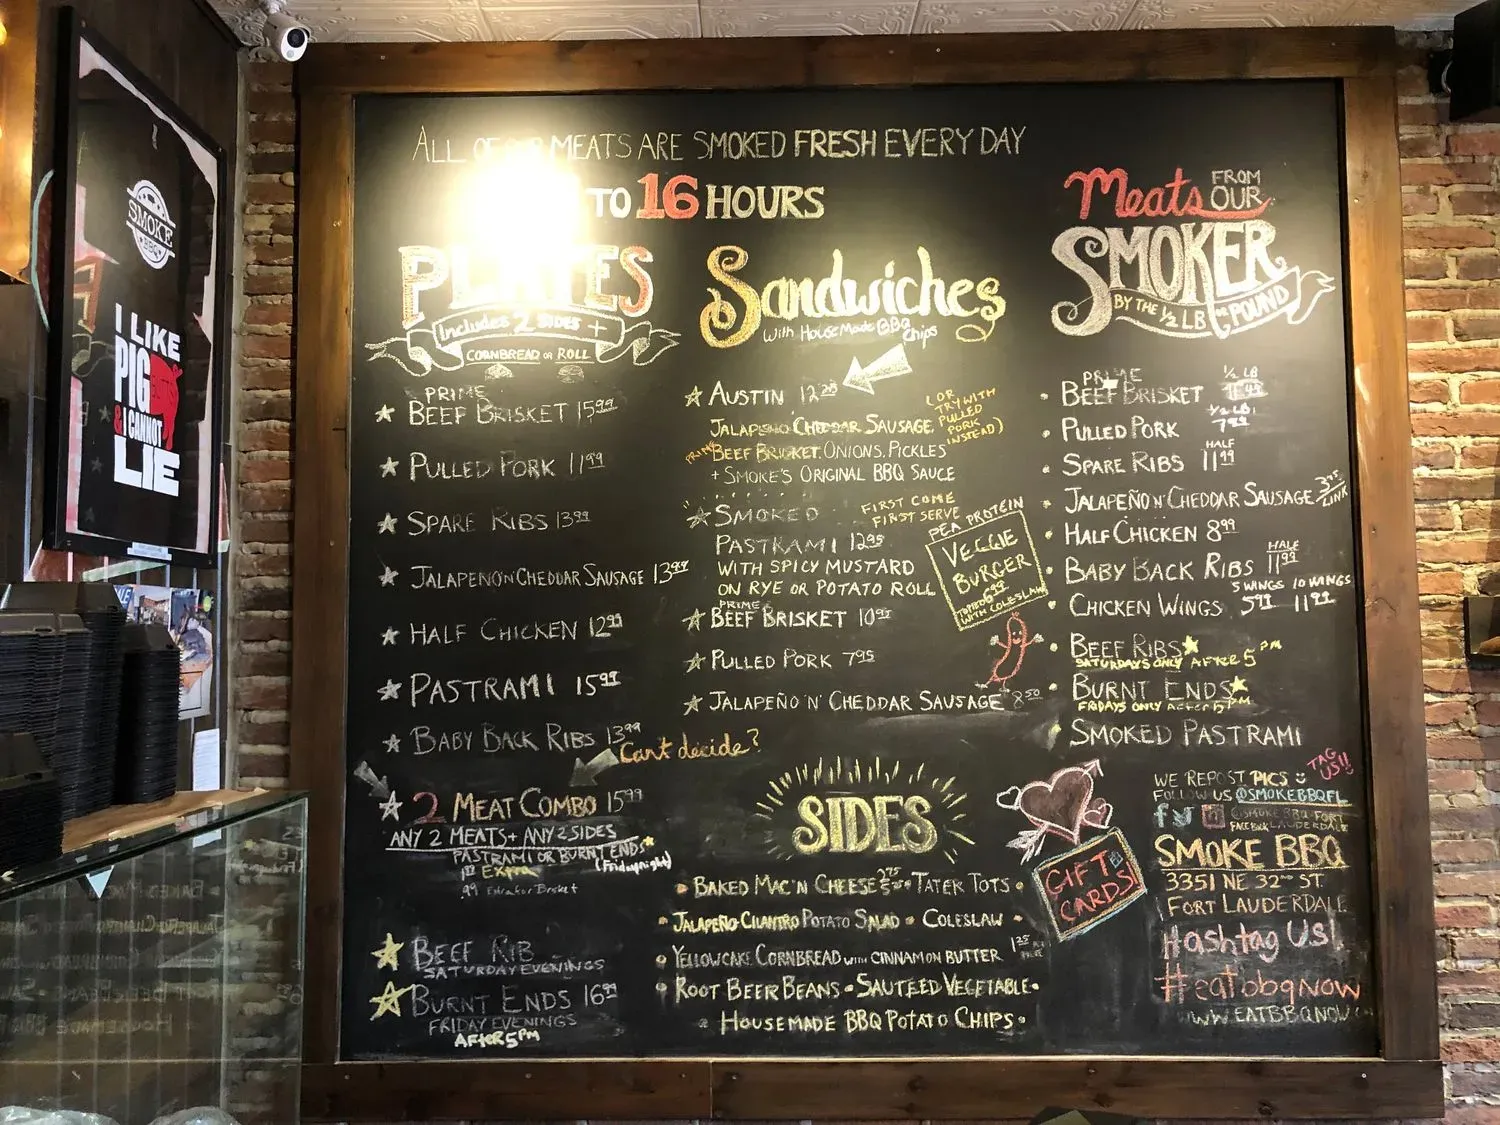 SMOKE
BBQ
I LIKE
PIG
BUTTS
& I CANNOT
LIE
ALL OF OUR MEATS ARE SMOKED FRESH EVERY DAY
TO 16 HOURS
PLATES
Includes 2 SIDES +
CORNBREAD OR ROLL
PRIME
BEEF BRISKET 15.99
PULLED PORK 11.99
SPARE RIBS 13.99
JALAPEÑO'N'CHEDDAR SAUSAGE 13.99
HALF CHICKEN 12.99
PASTRAMI 15.99
BABY BACK RIBS 13.99
Can't decide?
2 MEAT COMBO 15.99
ANY 2 MEATS + ANY 2 SIDES
PASTRAMI OR BURNT ENDS
(Friday night)
Extra
.99 Extra for Brisket
BEEF RIB
SATURDAY EVENINGS
BURNT ENDS 16.99
FRIDAY EVENINGS
AFTER 5PM
Sandwiches
With House Made BBQ
Chips
AUSTIN 12.25
JALAPEÑO CHEDDAR SAUSAGE,
(OR
TRY WITH
PULLED
PORK
INSTEAD)
PRIME BEEF BRISKET, ONIONS, PICKLES
+ SMOKE'S ORIGINAL BBQ SAUCE
SMOKED
FIRST COME
FIRST SERVE
PASTRAMI 12.95
WITH SPICY MUSTARD
ON RYE OR POTATO ROLL
PEA PROTEIN
VEGGIE
BURGER
TOPPED
WITH COLESLAW
PRIME
BEEF BRISKET 10.95
PULLED PORK 7.95
JALAPEÑO 'N' CHEDDAR SAUSAGE 8.50
SIDES
BAKED MAC'N CHEESE • TATER TOTS
JALAPEÑO-CILANTRO POTATO SALAD • COLESLAW
YELLOWCAKE CORNBREAD WITH CINNAMON BUTTER 1.25
ROOT BEER BEANS • SAUTEED VEGETABLE
HOUSEMADE BBQ POTATO CHIPS
GIFT
CARDS!
Meats FROM
OUR
SMOKER
BY THE 1/2 LB OR POUND
PRIME
BEEF BRISKET 1/2 LB
PULLED PORK 1/2 LB 7.99
SPARE RIBS HALF 11.99
JALAPEÑO N' CHEDDAR SAUSAGE 3.75/LINK
HALF CHICKEN 8.99
BABY BACK RIBS HALF 11.99
5 WINGS 10 WINGS
CHICKEN WINGS 5.99 11.99
BEEF RIBS
SATURDAYS ONLY AFTER 5 PM
BURNT ENDS
FRIDAYS ONLY AFTER 5PM
SMOKED PASTRAMI
TAG
US!!
WE REPOST PICS
FOLLOW US @SMOKEBBQFL
@SMOKE BBQ-FORT
FACEBOOK LAUDERDALE
SMOKE BBQ
3351 NE 32ND ST.
FORT LAUDERDALE
Hashtag Us!
#eatbbqNOW
WWW.EATBBQNOW.